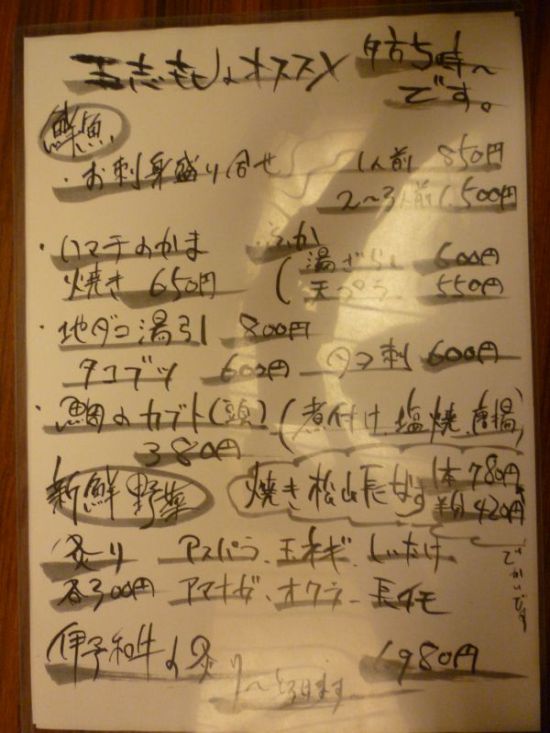 五志もしのオススメ 夕方5時〜
です。
鮮魚
・お刺身盛り合せ 1人前 850円
2〜3人前 1,500円
・ハマチのかま
焼き 650円
・ふか
湯ざらし 600円
天ぷら 550円
・地ダコ湯引 800円
タコブツ 600円 タコ刺 600円
・鯛のカブト(頭) (煮付け、塩焼、唐揚)
380円
新鮮野菜 焼き松山長なす 1本 780円
半分 420円
でかいです
炙り アスパラ、玉ネギ、しいたけ
各300円 アマナガ、オクラ、長イモ
伊予和牛の炙り 1980円
〜とろけます〜